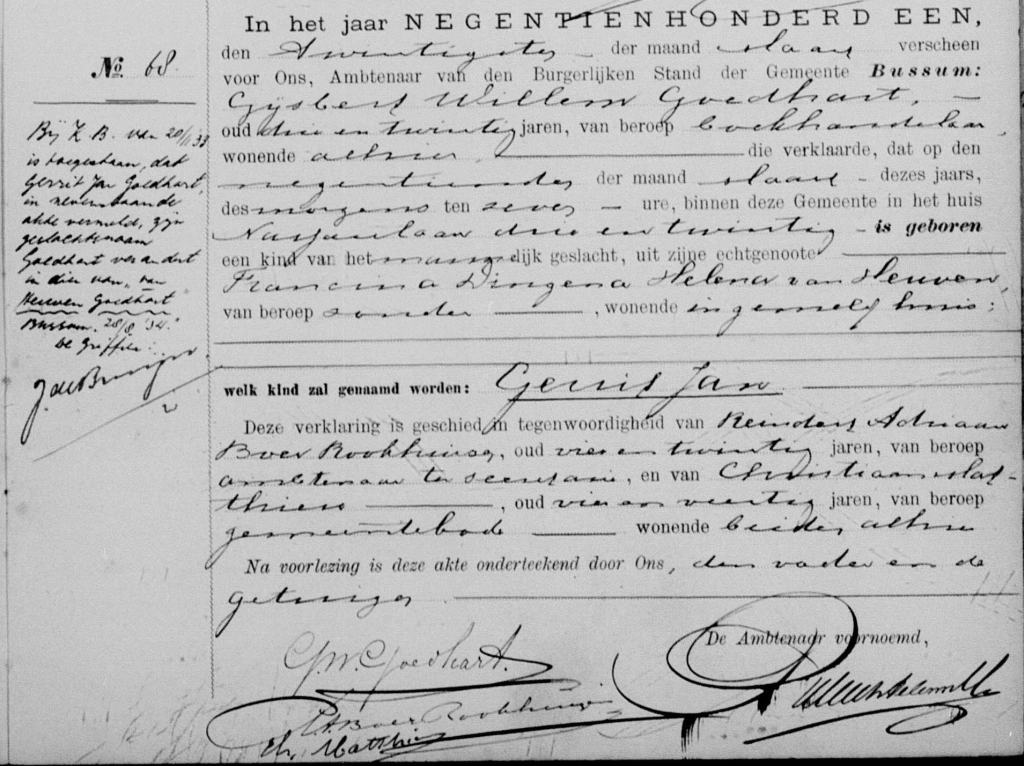 In het jaar NEGENTIENHONDERD EEN,
den twintigsten der maand Maart verscheen
voor Ons, Ambtenaar van den Burgerlijken Stand der Gemeente Bussum:
Gijsbert Willem Goedhart,
oud drie en twintig jaren, van beroep boekhandelaar,
wonende alhier die verklaarde, dat op den
negentienden der maand Maart dezes jaars,
des morgens ten zeven ure, binnen deze Gemeente in het huis
Nassaulaan drie en twintig is geboren
een kind van het mannelijk geslacht, uit zijne echtgenoote
Francina Dingena Helena van Heuven,
van beroep zonder, wonende in gemeld huis;
welk kind zal genaamd worden: Gerrit Jan
Deze verklaring is geschied in tegenwoordigheid van Reindert Adriaan
Boer Rookhuizen, oud vier en twintig jaren, van beroep
ambtenaar ter secretarie, en van Christiaan Mat-
thies, oud vier en veertig jaren, van beroep
gemeentebode wonende beiden alhier
Na voorlezing is deze akte onderteekend door Ons, den vader en de
getuigen
De Ambtenaar voornoemd,
G.W. Goedhart.
R A Boer Rookhuizen
Ch. Matthies
No 68.
Bij K.B. van 20/11 33
is toegestaan, dat
Gerrit Jan Goedhart,
in nevenstaande
akte vermeld, zijn
geslachtsnaam
Goedhart verandert
in dien van, van
Heuven Goedhart
Bussum. 28/8 '34.
De Griffier: